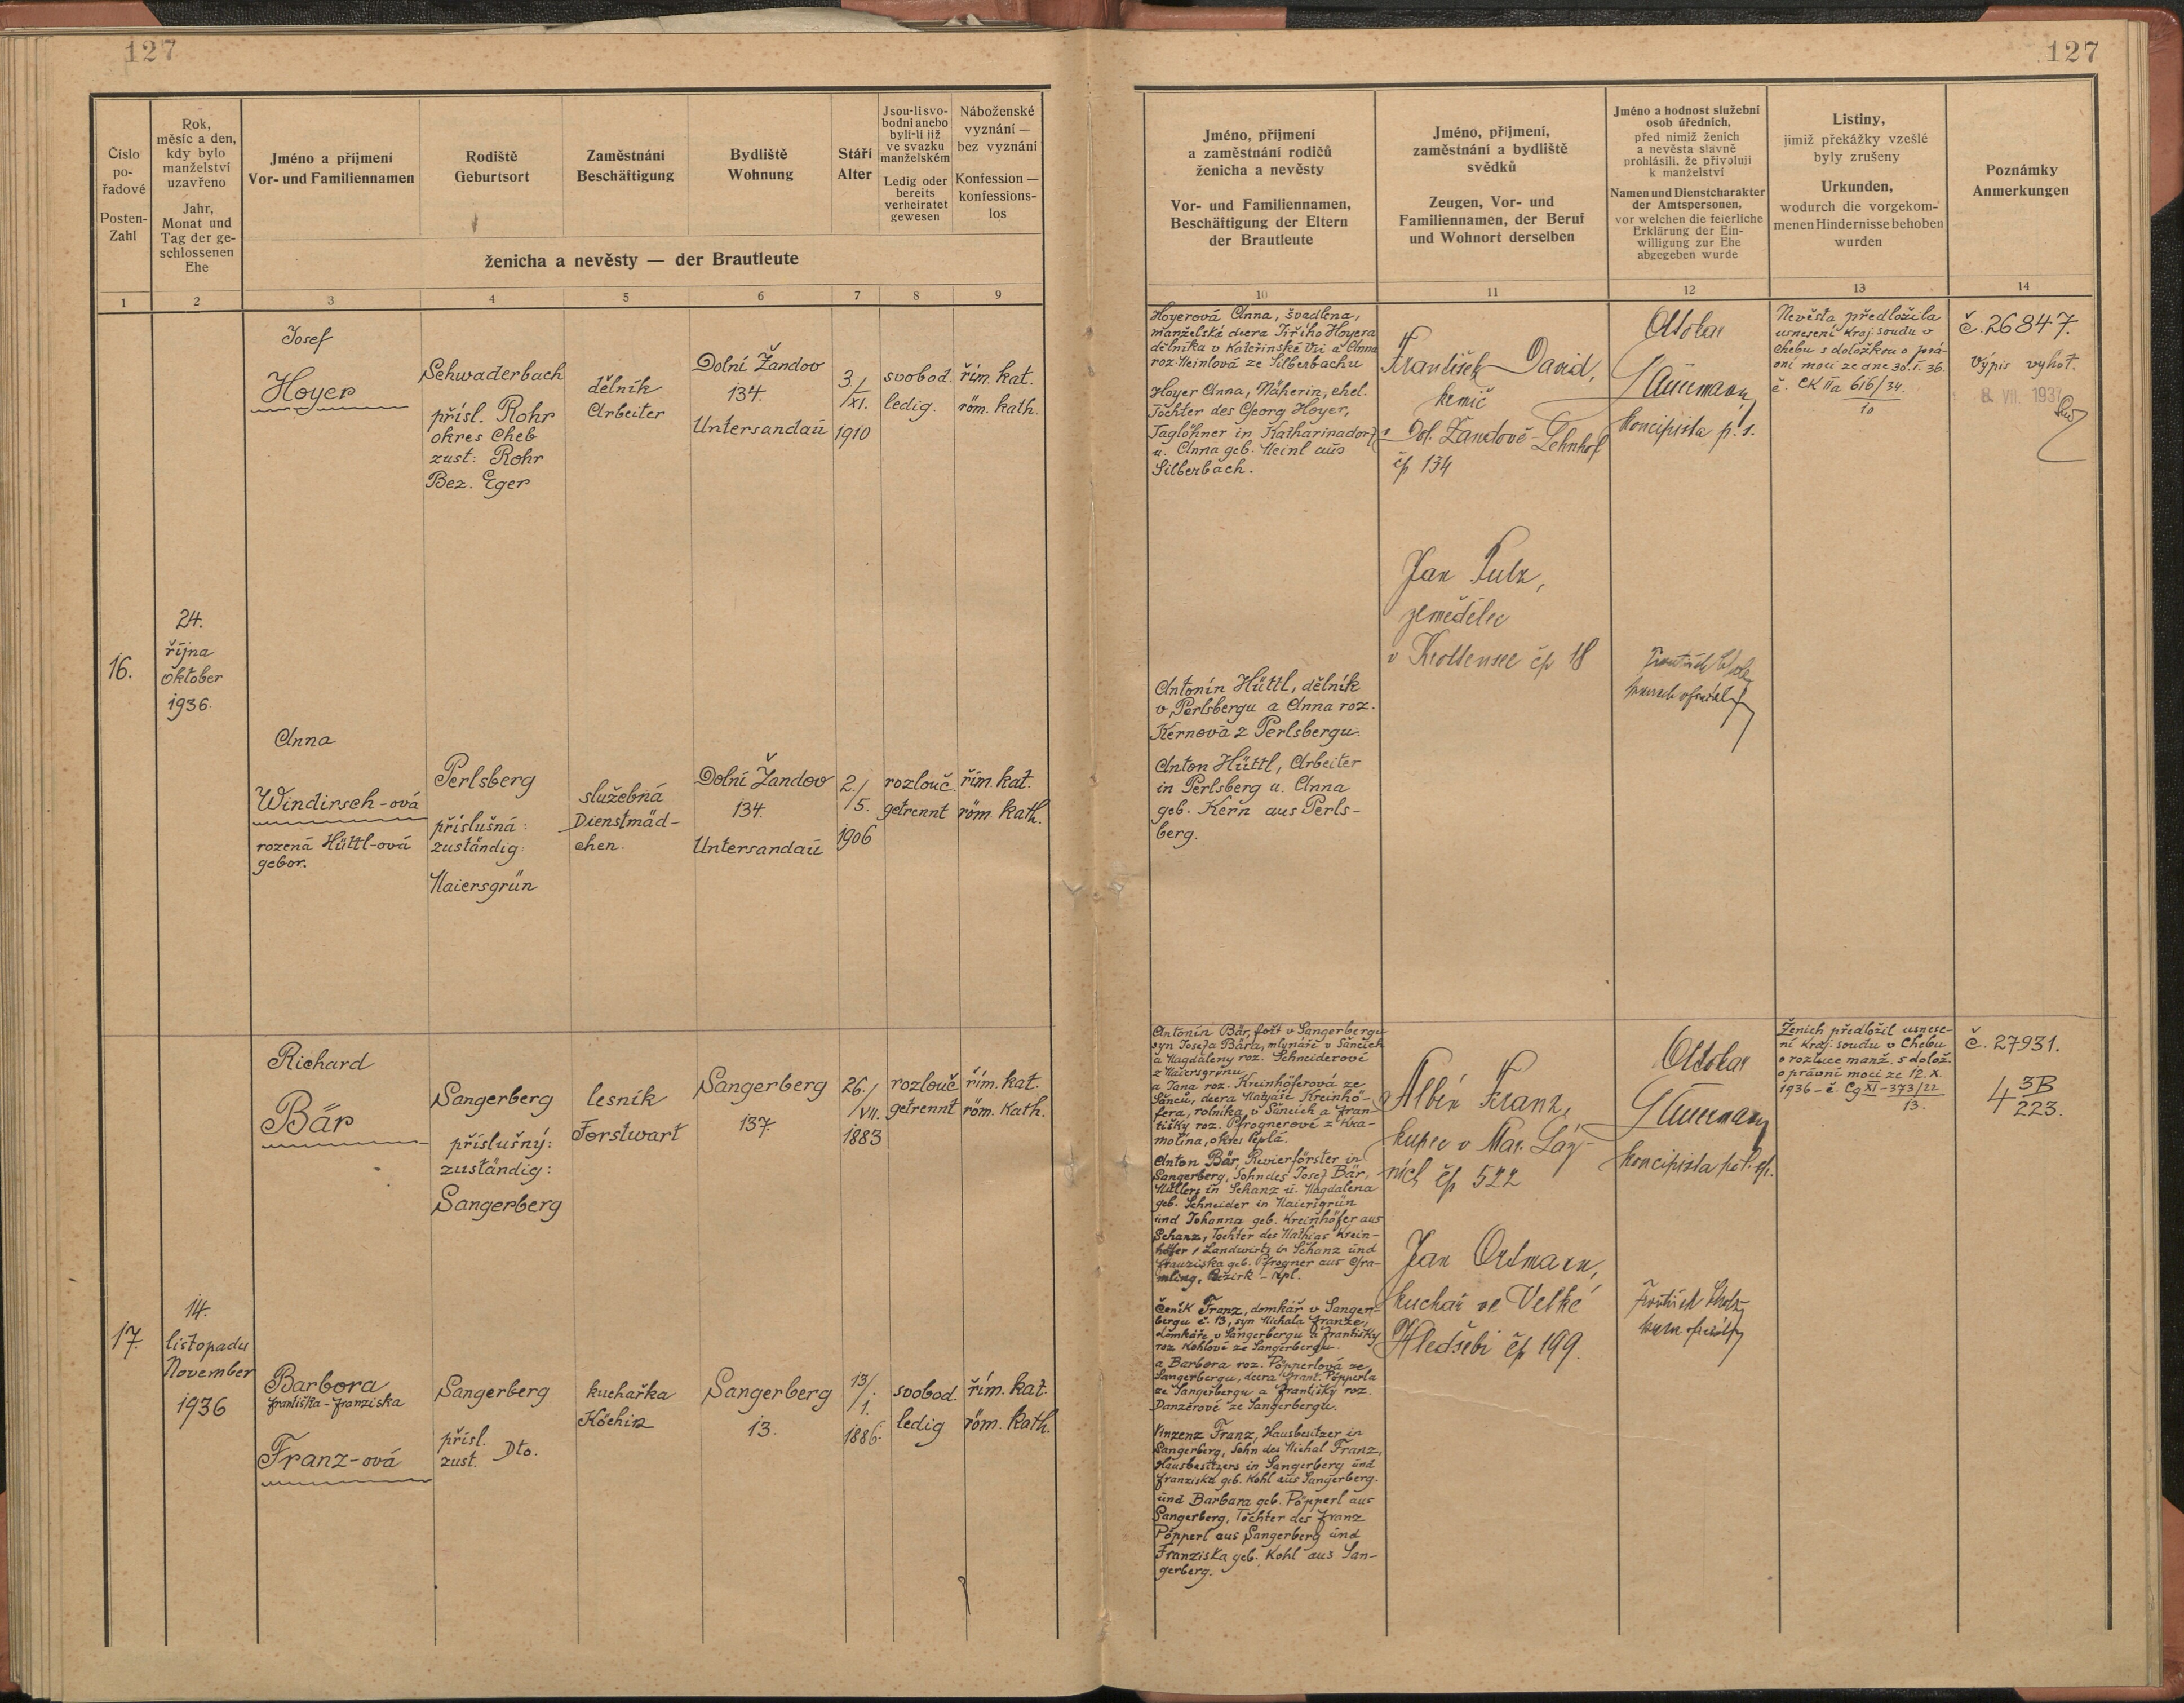 127
127
Číslo
po-
řadové
Posten-
Zahl
Rok,
měsíc a den,
kdy bylo
manželství
uzavřeno
Jahr,
Monat und
Tag der ge-
schlossenen
Ehe
Jméno a příjmení
Vor- und Familiennamen
Rodiště
Geburtsort
Zaměstnání
Beschäftigung
Bydliště
Wohnung
Stáří
Alter
Jsou-li svo-
bodni aneb
byli-li již
ve svazku
manželském
Ledig oder
bereits
verheiratet
gewesen
Náboženské
vyznání —
bez vyznání
Konfession —
konfessions-
los
ženicha a nevěsty — der Brautleute
Jméno, příjmení
a zaměstnání rodičů
ženicha a nevěsty
Vor- und Familiennamen,
Beschäftigung der Eltern
der Brautleute
Jméno, příjmení,
zaměstnání a bydliště
svědků
Zeugen, Vor- und
Familiennamen, der Beruf
und Wohnort derselben
Jméno a hodnost služební
osob úředních,
před nimiž ženich
a nevěsta slavně
prohlásili, že přivolují
k manželství
Namen und Dienstcharakter
der Amtspersonen,
vor welchen die feierliche
Erklärung der Ein-
willigung zur Ehe
abgegeben wurde
Listiny,
jimiž překážky vzešlé
byly zrušeny
Urkunden,
wodurch die vorgekom-
menen Hindernisse behoben
wurden
Poznámky
Anmerkungen
1 2 3 4 5 6 7 8 9 10 11 12 13 14
16.
24.
října
Oktober
1936.
Josef
Hoyer
Schwaderbach
přísl. Rohr
okres Cheb
zust: Rohr
Bez. Eger
dělník
Arbeiter
Dolní Žandov
134.
Untersandau
3./
/XI.
1910
svobod.
ledig.
řím. kat.
röm. kath.
Anna
Windirsch-ová
rozená Hüttl-ová
gebor.
Perlsberg
příslušná:
zuständig:
Maiersgrün
služebná
Dienstmäd-
chen.
Dolní Žandov
134.
Untersandau
2./
/5.
1906
rozlouč.
getrennt
řím. kat.
röm. kath.
Hoyerová Anna, švadlena,
manželská dcera Jiřího Hoyera
dělníka v Kateřinské Vsi a Anna
roz Meinlová ze Silberbachu
Hoyer Anna, Näherin, ehel.
Tochter des Georg Hoyer,
Taglöhner in Katharinadorf
u. Anna geb. Meinl aus
Silberbach.
Antonín Hüttl, dělník
v Perlsbergu a Anna roz.
Kernová z Perlsbergu.
Anton Hüttl, Arbeiter
in Perlsberg u. Anna
geb. Kern aus Perls-
berg.
František David,
v Dol. Žandově-Lehnhof
čp 134
Jan
zemědělec
v Krottensee čp 18
Ottokar
koncipista p. s.
Nevěsta předložila
usnesení kraj. soudu v
Chebu s doložkou o prá-
vní moci ze dne 30. I. 36.
č. CK IIa 616/34.
10
č. 26847.
Výpis vyhot.
8. VII. 193
17.
14.
listopadu
November
1936
Richard
Bär
Sangerberg
příslušný:
zuständig:
Sangerberg
lesník
Forstwart
Sangerberg
137.
26./
/VII.
1883
rozlouč
getrennt
řím. kat.
röm. kath.
Barbora
Františka-Franziska
Franz-ová
Sangerberg
přísl.
zust. Dto.
kuchařka
Köchin
Sangerberg
13.
13/.
/1.
1886.
svobod.
ledig
řím. kat.
röm. kath.
Antonín Bär, fořt v Sangerbergu
syn Josefa Bära, mlynáře v Šancích
a Magdaleny roz. Schneiderové
z Maiersgrünu
a Jana roz. Kreinhöferová ze
Šanců, dcera Matyáše Kreinhö-
fera, rolníka v Šancích a Fran-
tišky roz. Pfrognerové z Kra-
molína, okres Teplá.
Anton Bär, Revierförster in
Sangerberg, Sohn des Josef Bär,
Müllers in Schanz u. Magdalena
geb. Schneider in Maiersgrün
und Johanna geb. Kreinhöfer aus
Schanz, Tochter des Mathias Krein-
höfer, Landwirts in Schanz und
Franziska geb. Pfrogner aus Gra-
mling, Bezirk - Tepl.
Čeněk Franz, domkář v Sanger-
bergu č. 13, syn Michala Franze,
domkáře v Sangerbergu a Františky
roz Kohlové ze Sangerbergu.
a Barbora roz. Pöpperlová ze
Sangerbergu, dcera Frant. Pöpperla
ze Sangerbergu a Františky roz.
Danzerové ze Sangerbergu.
Vinzenz Franz, Hausbesitzer in
Sangerberg, Sohn des Michal Franz,
Hausbesitzers in Sangerberg und
Franziska geb. Kohl aus Sangerberg.
und Barbara geb. Pöpperl aus
Sangerberg, Tochter des Franz
Pöpperl aus Sangerberg und
Franziska geb. Kohl aus San-
gerberg.
Albín Franz,
kupec v Mar. Láz-
ních čp 522
Jan Ortmann,
kuchař ve Velké
Hledsebi čp 199.
Ottokar
koncipista pol. spr.
Ženich předložil usnese-
ní kraj. soudu v Chebu
o rozluce manž. s dolož.
o právní moci ze 12. X.
1936 - č. Cg XI-373/22
13.
č. 27931.
4 3B
223.